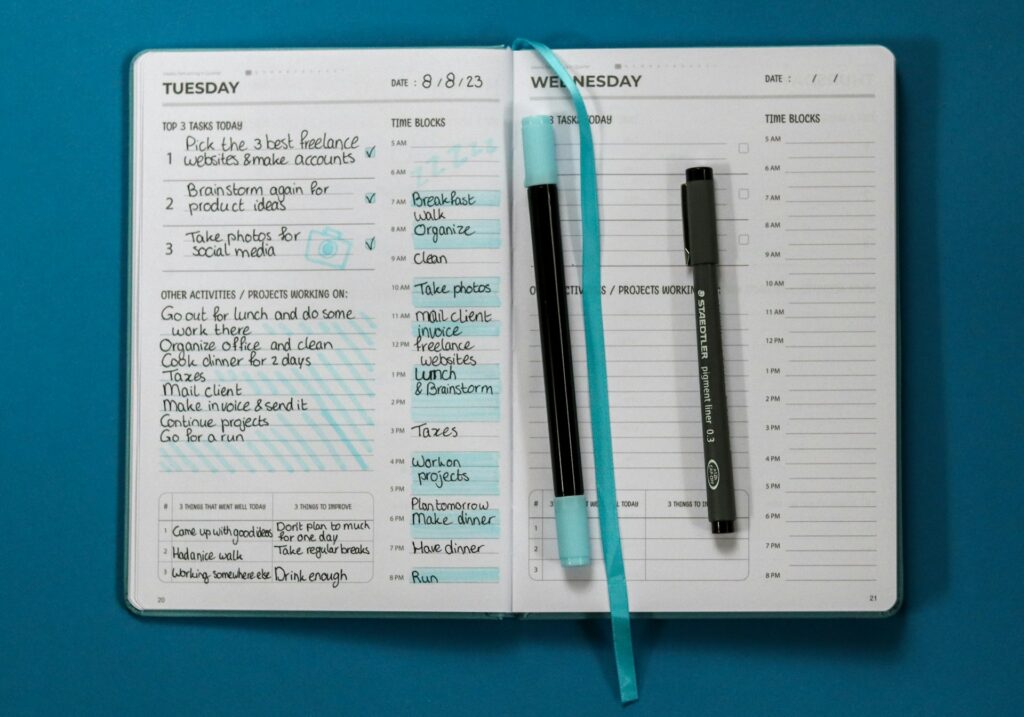 TUESDAY
TOP 3 TASKS TODAY
1 Pick the 3 best freelance
websites & make accounts
2 Brainstorm again for
product ideas
3 Take photos for
social media
OTHER ACTIVITIES / PROJECTS WORKING ON:
Go out for lunch and do some
work there
Organize office and clean
Cook dinner for 2 days
Taxes
Mail client
Make invoice & send it
Continue projects
Go for a run
# 3 THINGS THAT WENT WELL TODAY 3 THINGS TO IMPROVE
1 Came up with good ideas Don't plan to much
for one day
2 Had a nice walk Take regular breaks
3 Working somewhere else Drink enough
20
DATE : 8/8/23
TIME BLOCKS
5 AM
6 AM
7 AM Breakfast
walk
8 AM Organize
9 AM Clean
10 AM Take photos
11 AM Mail client
invoice
12 PM freelance
websites
1 PM Lunch
& Brainstorm
2 PM
3 PM Taxes
4 PM Work on
projects
5 PM
Plan tomorrow
6 PM Make dinner
7 PM Have dinner
8 PM Run
WEDNESDAY
3 TASKS TODAY
ACTIVITIES / PROJECTS WORKING
# 3 THINGS WENT WELL TODAY 3 THINGS
1
2
3
DATE : / /
TIME BLOCKS
5 AM
6 AM
7 AM
8 AM
9 AM
10 AM
11 AM
12 PM
1 PM
2 PM
3 PM
4 PM
5 PM
6 PM
7 PM
8 PM
21
STAEDTLER pigment liner 0.3